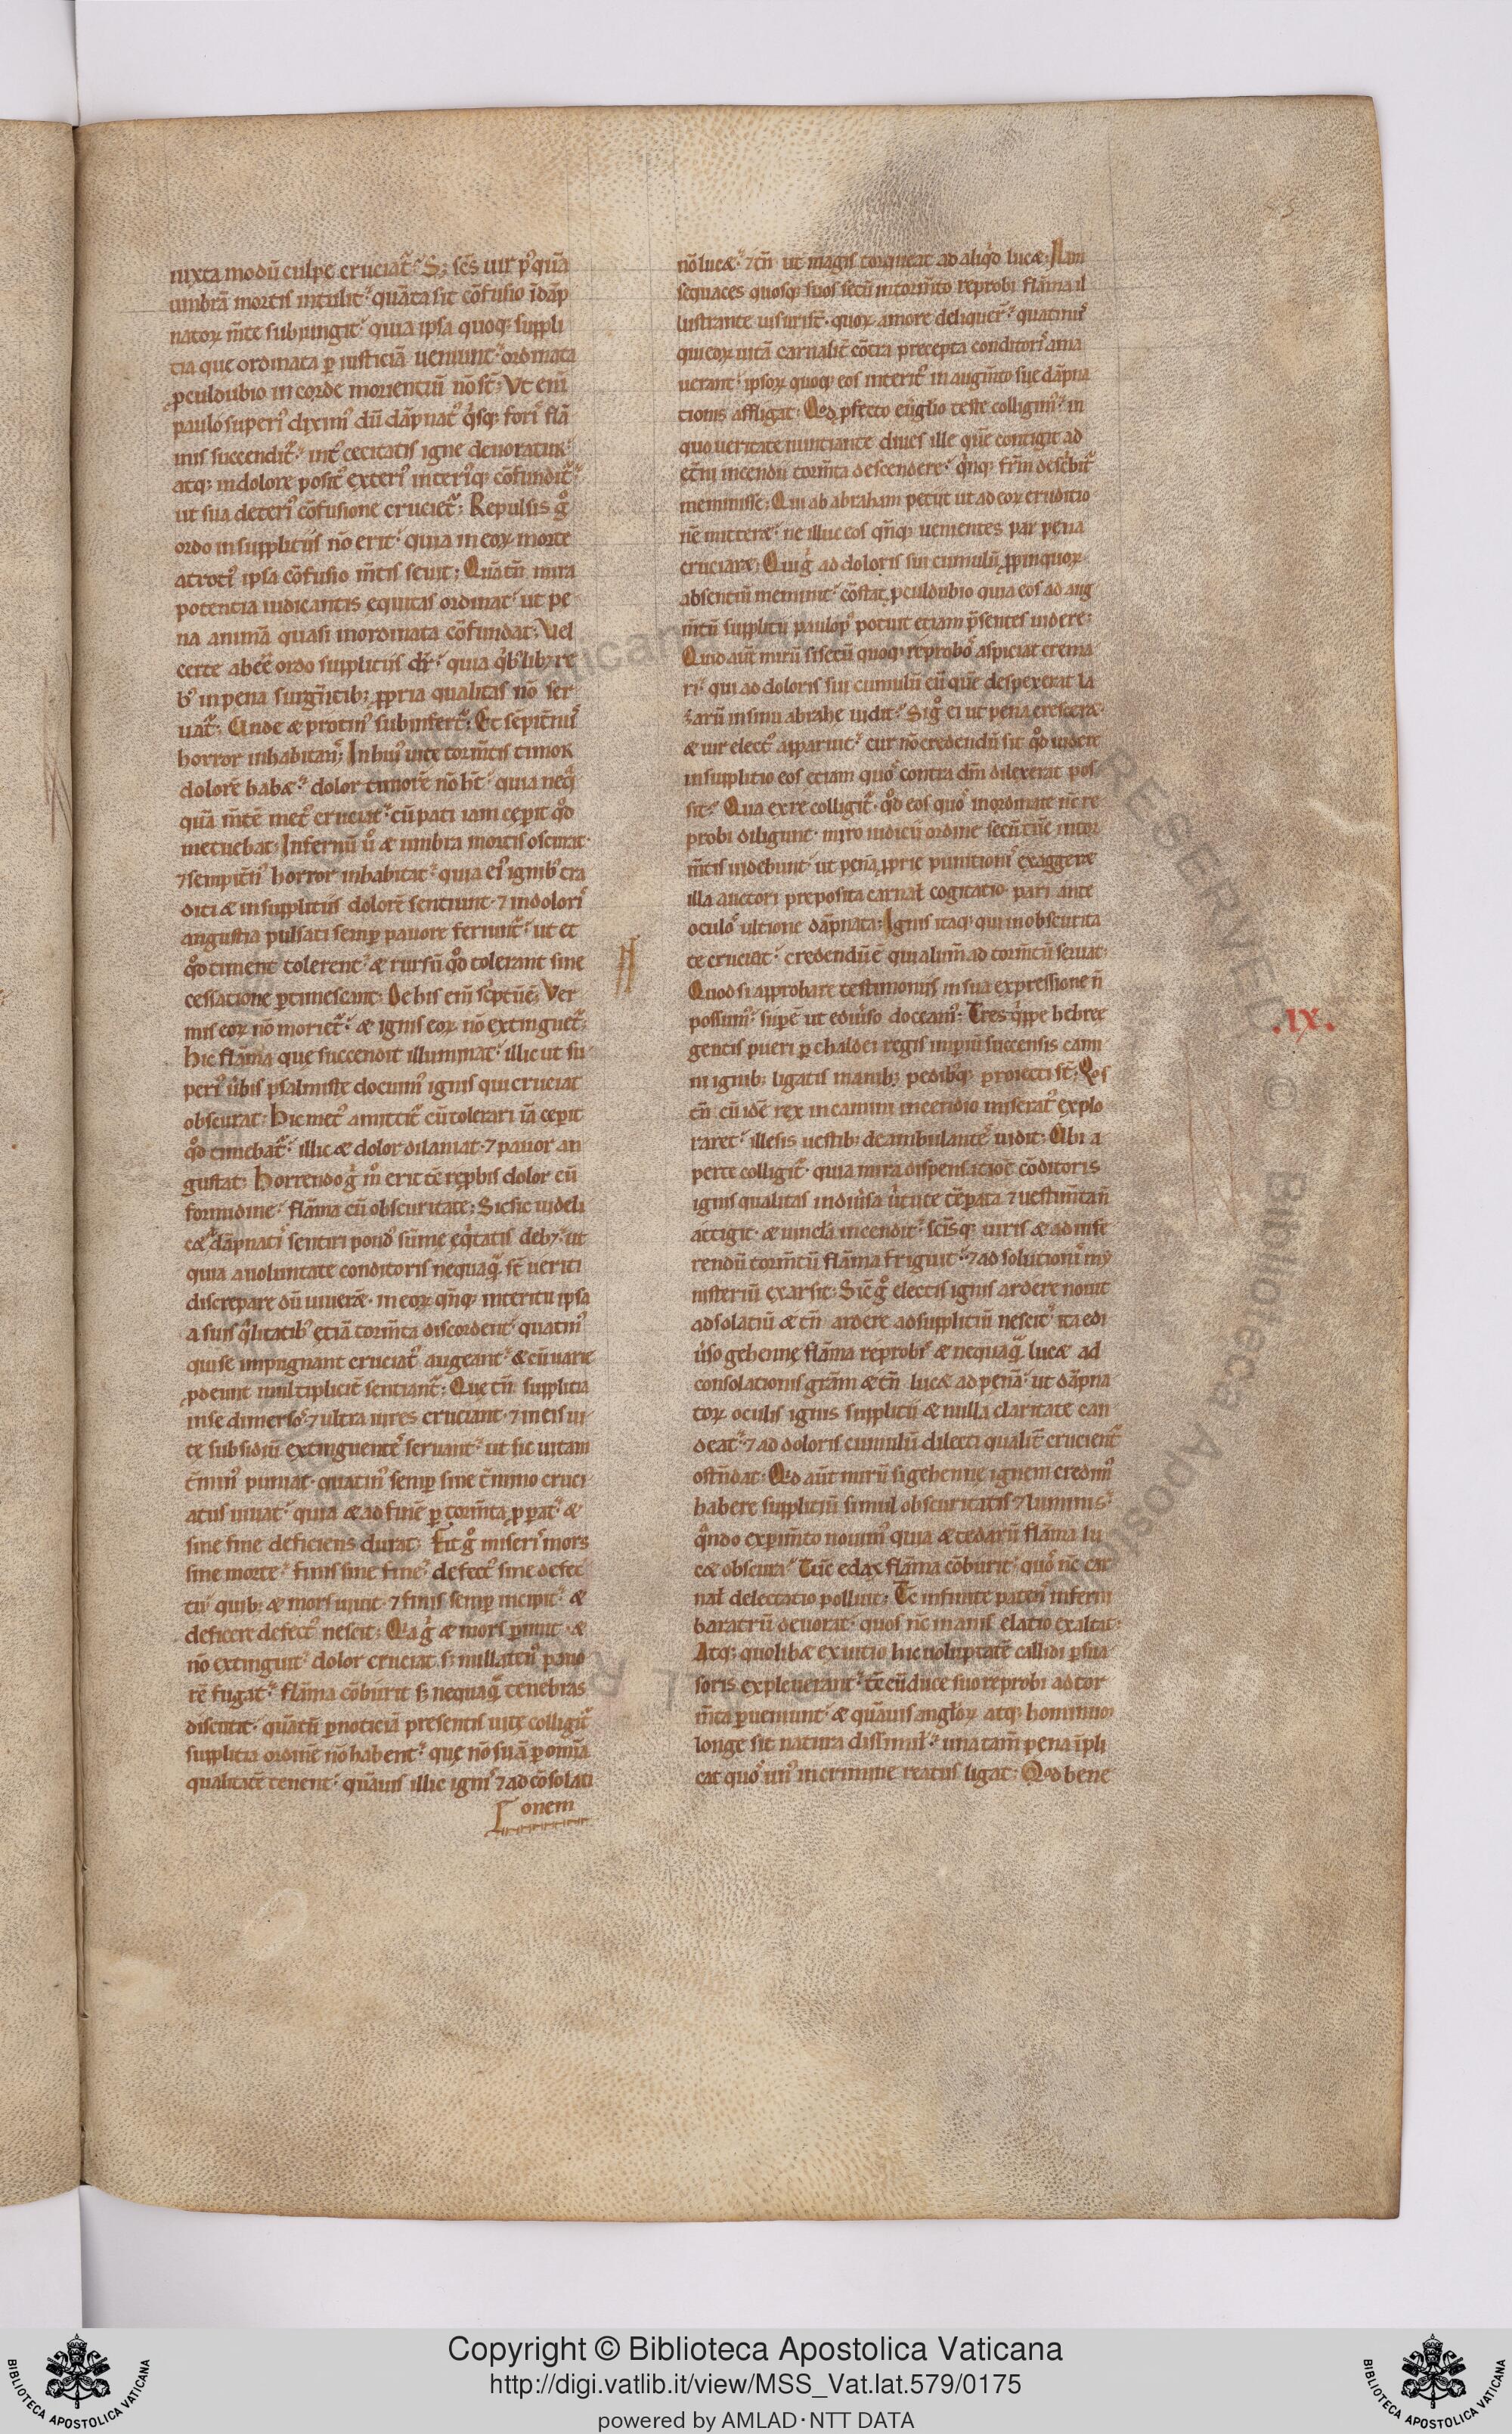 iuxta modū culpe cruciat᷑. S; scs uir pꝰquā
umbrā mortis intulit. quāta sit cōfusio īdāp
natoꝝ m̄te subiungit. quia ipsa quoq; suppli
tia que ordinata ꝑ iusticiā ueniunt. ordinata
ꝓculdubio in corde morientiū nō st̄; Ut enī
paulo superiꝰ diximꝰ dū dāpnatꝰ qͥsq; forꝭ flā
mis succendit᷑. intꝰ cecitatis igne deuoratur.
atq; in dolore positꝰ exteriꝰ interiꝰq; cōfundit᷑.
ut sua deteriꝰ cōfusione cruciet᷑; Repulsis gͦ
ordo in supplitiis nō erit. quia in eoꝝ morte
atrociꝰ ipsa cōfusio m̄tis seuit; Quā tn̄ mira
potentia iudicantis equitas ordinat. ut pe
na animā quasi inordinata cōfundat; Vel
certe abeē ordo supplitiis dr̄. quia qͥbꝰlibꝫ re
bꝰ in pena surgn̄tibꝫ ꝓpria qualitas nō ser
uat᷑; Unde & protinꝰ subinfert᷑; Et sēpit̄nꝰ
horror inhabitanſ; In huiꝰ uite torm̄tis timor
dolorē habꝫ. dolor timorē nō ht̄. quia neqͣ
quā m̄tē metꝰ cruciat. cū pati iam cepit qͦd
metuebat; Infernū uͦ & umbra mortis oscurat.
⁊ sempit̄nꝰ horror inhabitat. quia eiꝰ ignibꝰ tra
diti & in supplitiis dolorē sentiunt. ⁊ in dolorꝭ
angustia pulsati semꝑ pauore feriunt᷑. ut et
qͦd timent tolerent. & rursū qͦd tolerant sine
cessatione ꝑtimescant; De his enī sc̄ptū ē; Ver
mis eoꝝ nō moriet᷑. & ignis eoꝝ nō extinguet᷑;
Hic flāma que succendit illuminat. illic ut su
periꝰ u̇bis psalmiste docuimꝰ ignis qui cruciat
obscurat; Hic metꝰ amittit᷑ cū tolerari iā cepit
qͦd timebat᷑. illic & dolor dilaniat. ⁊ pauor an
gustat; Horrendo gͥ mͦ erit tē reꝓbis dolor cū
formidine. flāma cū obscuritate; Sic sic uideli
c& dāpnatꝭ sentiri pondꝰ sūme eqͥtatis debꝫ. ut
quia a uoluntate conditoris nequaqͣ st̄ ueriti
discrepare dū uiuer&. in eoꝝ qn̄q; interitu ipsa
a suis qͣlitatibꝰ etiā torm̄ta discordent. quatinꝰ
qui se impugnant cruciatꝰ augeant. & cū uarie
ꝓdeunt multiplicit̄ sentiant᷑; Que tn̄ supplitia
in se dimersoſ. ⁊ ultra uires cruciant. ⁊ in eis ui
te subsidiū extinguenteſ seruant. ut sic uitam
t̄minꝰ puniat. quatinꝰ semꝑ sine t̄mino cruci
atus uiuat. quia & ad finē ꝑ torm̄ta ꝓperat. &
sine fine deficiens durat; Fit gͦ miserꝭ mors
sine morte. finis sine fine. defectꝰ sine defec
tu. quibꝫ & mors uiuit. ⁊ finis semꝑ incipit. &
deficere defectꝰ nescit; Qͥa gͥ & mors ꝑimit. &
nō extinguit. dolor cruciat. sꝫ nullatenꝰ pauo
rē fugat. flāma cōburit sꝫ nequaqͣ tenebras
discutit. quātū ꝑ noticiā presentis uite colligit᷑
supplitia ordinē nō habent. que nō suā ꝑ omīa
qualitatē tenent. quāuis illic ignis ⁊ ad cōsolati
onem
nō luc&. ⁊ tn̄ ut magis torqueat ad aliqͥd luc&; Nam
sequaces quosq; suos secū in torm̄to reprobi flāma il
lustrante uisuri st̄. quoꝝ amore deliquer̄. quatinuſ
qui eoꝝ uitā carnalit̄ cōtra precepta conditorꝭ ama
uerant. ipsoꝝ quoq; eos interitꝰ in augm̄to sue dāpna
tionis affligat; Qd̄ ꝓfecto eu̇glio teste colligimꝰ. in
quo ueritate nuntiante diues ille quē contigit ad
et̄ni incendii torm̄ta descendere. qͥnq; fr̄m describit᷑
meminisse; Qui ab abraham petiit ut ad eoꝝ eruditio
nē mitter&. ne illuc eos qn̄q; uenientes par pena
cruciar&; Qui gͥ ad doloris sui cumulū ꝓpinquoꝝ
absentiū meminit. cōstat ꝓculdubio quia eos ad aug
m̄tū supplitii paulopꝰ potuit etiam p̄sentes uidere;
Quid aut̄ mirū si secū quoq; reproboſ aspiciat crema
ri. qui ad doloris sui cumulū eū quē despexerat la
zarū in sinu abrahe uidit; Si gͦ ei ut pena cresceret
& uir electꝰ apparuit. cur nō credendū sit qͦd uidere
in supplitio eos etiam quoſ contra dm̄ dilexerat pos
sit; Qua ex re colligit᷑. qͦd eos quoſ inordinate nc̄ re
probi diligunt. miro iudicii ordine secū tūc in tor
m̄tis uidebunt. ut penā ꝓprie punitionis exagger&
illa auctori preposita carnal̄ cogitatio pari ante
oculoſ ultione dāpnata; Ignis itaq; qui in obscurita
te cruciat. credendū ē qui alum̄ ad torm̄tū seruat;
Quod si approbare testimoniis in sua expressione n̄
possumꝰ. supē ut edu̇so doceamꝰ; Tres qͥppe hebree
gentis pueri ꝑ chaldei regis imꝑiū succensis cami
ni ignibꝫ ligatis manibꝫ pedibꝰq; proiecti st̄; Qos
tn̄ cū idē rex in camini incendio miseratꝰ explo
raret. illesis uestibꝫ deambulanteſ uidit; Ubi a
perte colligit᷑. quia mira dispensatiōe cōditoris
ignis qualitas in diu̇sa u̇tute tēꝑata ⁊ uestim̄ta n̄
attigit. & uincla incendit. sc̄isq; uiris & ad infe
rendū torm̄tū flāma friguit. ⁊ ad solutionꝭ my
nisteriū exarsit; Sic̄ gͦ electis ignis ardere nouit
ad solatiū & tn̄ ardere ad supplitiū nescit. ita edi
u̇so gehenne flāma reprobꝭ & nequaqͣ luc& ad
consolationis grām & tn̄ luc& ad penā. ut dāpna
toꝝ oculis ignis supplitii & nulla claritate can
deat. ⁊ ad doloris cumulū dilecti qualit̄ crucient᷑
ostn̄dat; Qd̄ aut̄ mirū si gehenne ignem credimꝰ
habere supplitiū simul obscuritatis ⁊ luminis.
qͣndo exꝑim̄to nouimꝰ quia & tedarū flāma lu
c& obscura; Tūc edax flāma cōburit. quoſ nc̄ car
nal̄ delectatio polluit; Tc̄ infinite patens inferni
baratrū deuorat. quos nc̄ inanis elatio exaltat;
Atq; quolib& ex uitio hic uoluptatē callidi ꝑsua
soris expleuerant. tc̄ cū duce suo reprobi ad tor
m̄ta ꝑueniunt. & quāuis angl̄oꝝ atq; hominū
longe sit natura dissimil̄. una tam̄ pena īpli
cat quoſ unꝰ in crimine reatus ligat; Qd̄ bene
.IX.
Copyright © Biblioteca Apostolica Vaticana
http://digi.vatlib.it/view/MSS_Vat.lat.579/0175
powered by AMLAD·NTT DATA
BIBLIOTECA APOSTOLICA VATICANA
BIBLIOTECA APOSTOLICA VATICANA